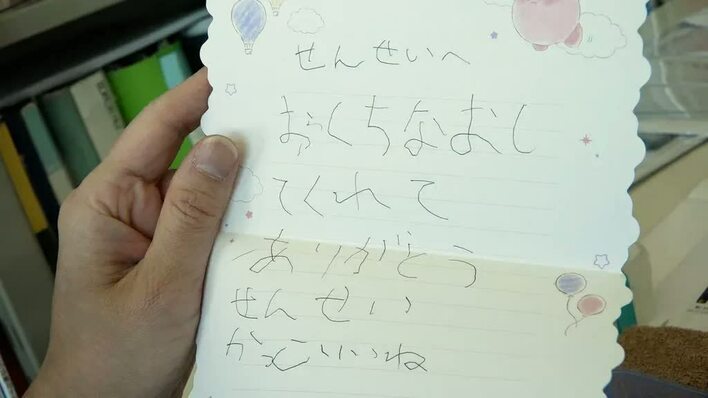 せんせいへ
おくちなおし
てくれて
ありがとう
せんせい
がっこいいね